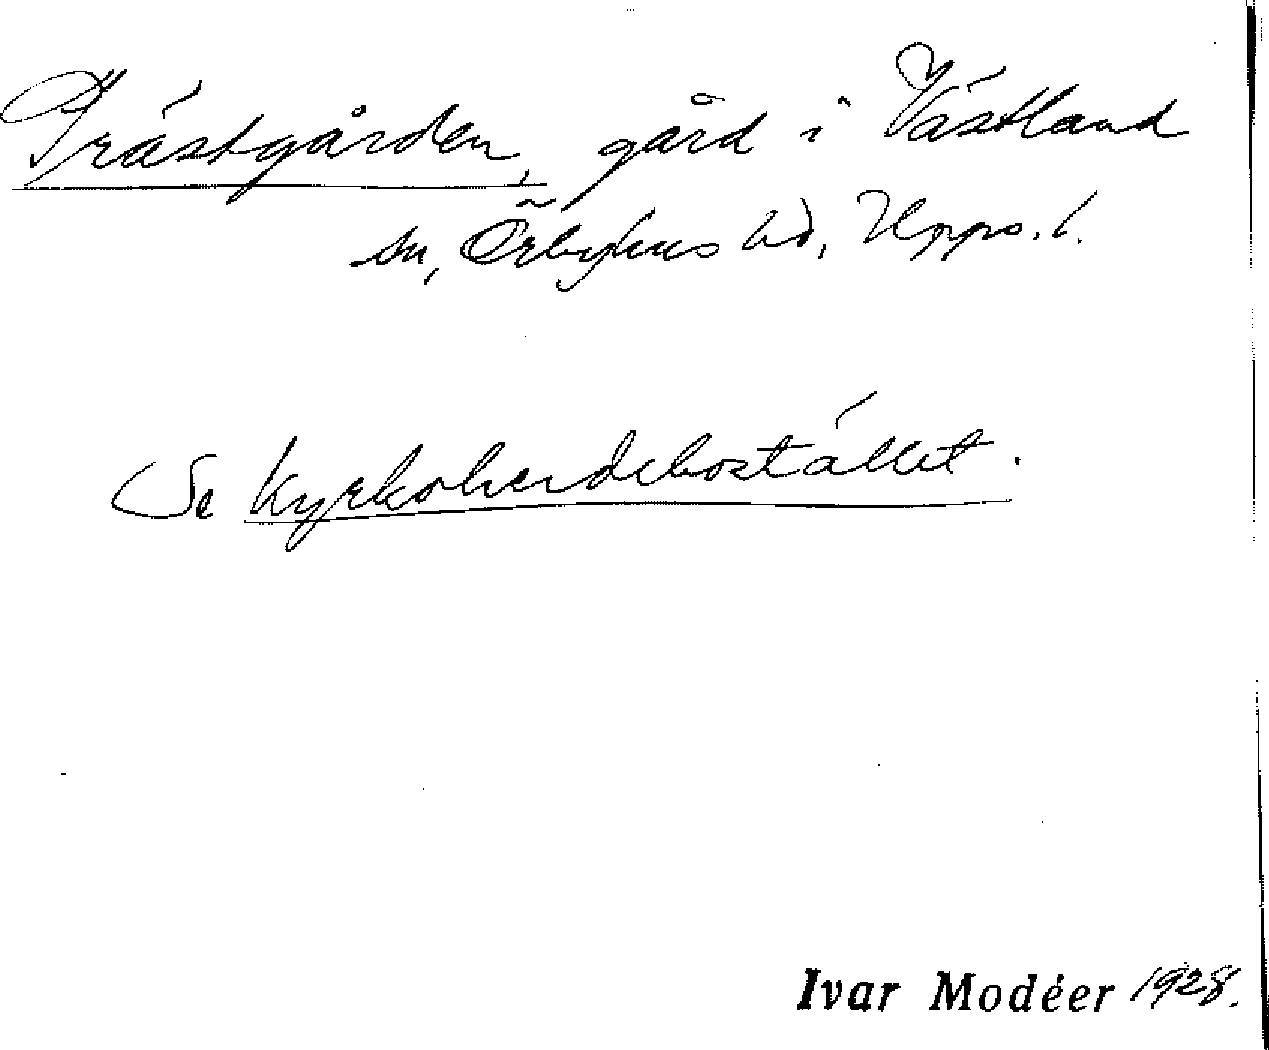 Prästgården, gård i Västland
sn, Örbyhus hd, Upps. l.
Se Kyrkoherdebostället.
Ivar Modéer 1928.